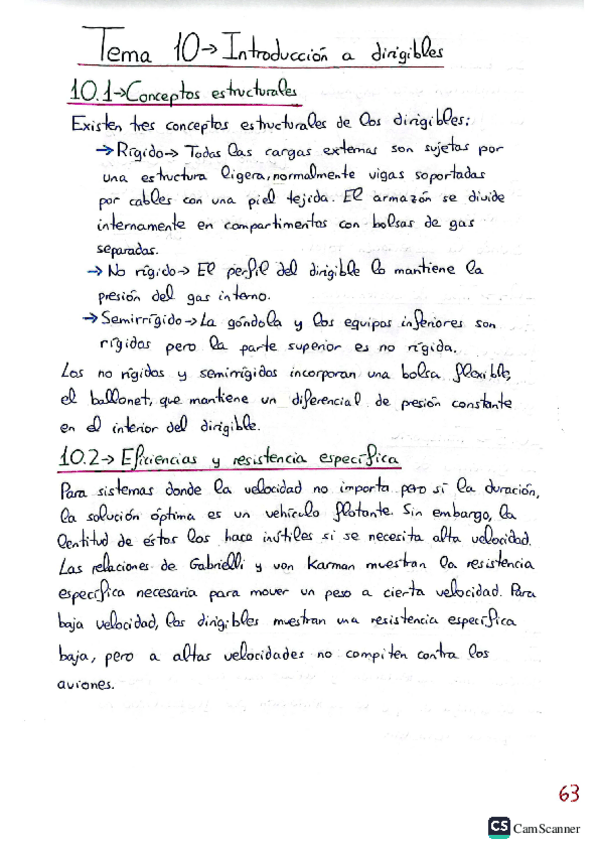 Tema 10→Introducción a dirigibles
10.1→Conceptos estructurales
Existen tres conceptos estructurales de los dirigibles:
→Rígido→ Todas las cargas externas son sujetas por
una estructura ligera, normalmente vigas soportadas
por cables con una piel tejida. El armazón se divide
internamente en compartimentos con bolsas de gas
separadas.
→No rígido→ El perfil del dirigible lo mantiene la
presión del gas interno.
→Semirrígido→La góndola y los equipos inferiores son
rígidas pero la parte superior es no rígida.
Los no rígidos y semirrígidos incorporan una bolsa flexible,
el ballonet, que mantiene un diferencial de presión constante
en el interior del dirigible.
10.2→Eficiencias y resistencia específica
Para sistemas donde la velocidad no importa pero sí la duración,
la solución óptima es un vehículo flotante. Sin embargo, la
lentitud de éstos los hace inútiles si se necesita alta velocidad.
Las relaciones de Gabrielli y von Karman muestran la resistencia
específica necesaria para mover un peso a cierta velocidad. Para
baja velocidad, los dirigibles muestran una resistencia específica
baja, pero a altas velocidades no compiten contra los
aviones.
63
CS CamScanner